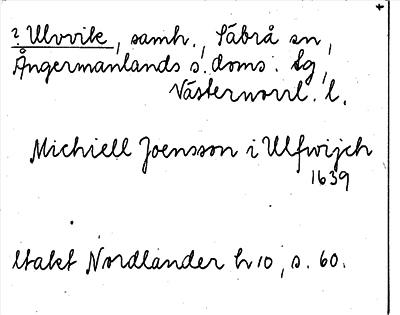 ? Ulvvik, samh., Säbrå sn,
Ångermanlands s. doms. tg,
Västernorrl. l.
Michiell Joensson i Ulfwijch
1639
Utakt Nordlander h 10, s. 60.